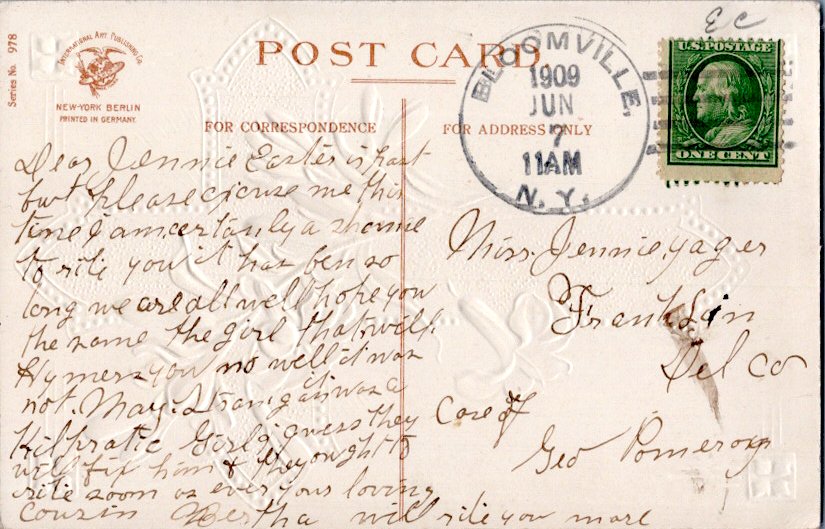 E C
POST CARD
Series No. 978
INTERNATIONAL ART PUBLISHING Co.
NEW-YORK BERLIN
PRINTED IN GERMANY.
BLOOMVILLE,
1909
JUN
7
11AM
N. Y.
U.S. POSTAGE
ONE CENT
FOR CORRESPONDENCE
FOR ADDRESS ONLY
Dear Jennie Easter is past
but please excuse me this
time i am certanly a shamie
to rite you it has ben so
long we are all well hope you
the same the girl that will
Hymers you no well it was
not. May. it was a
Kilpratic Girl i guess they
will fix him & they ought to
rite soon as ever your loving
cousin Bertha will rite you more
Miss. Jennie yager
Franklin
Del Co
Care of
Geo Pomeroy